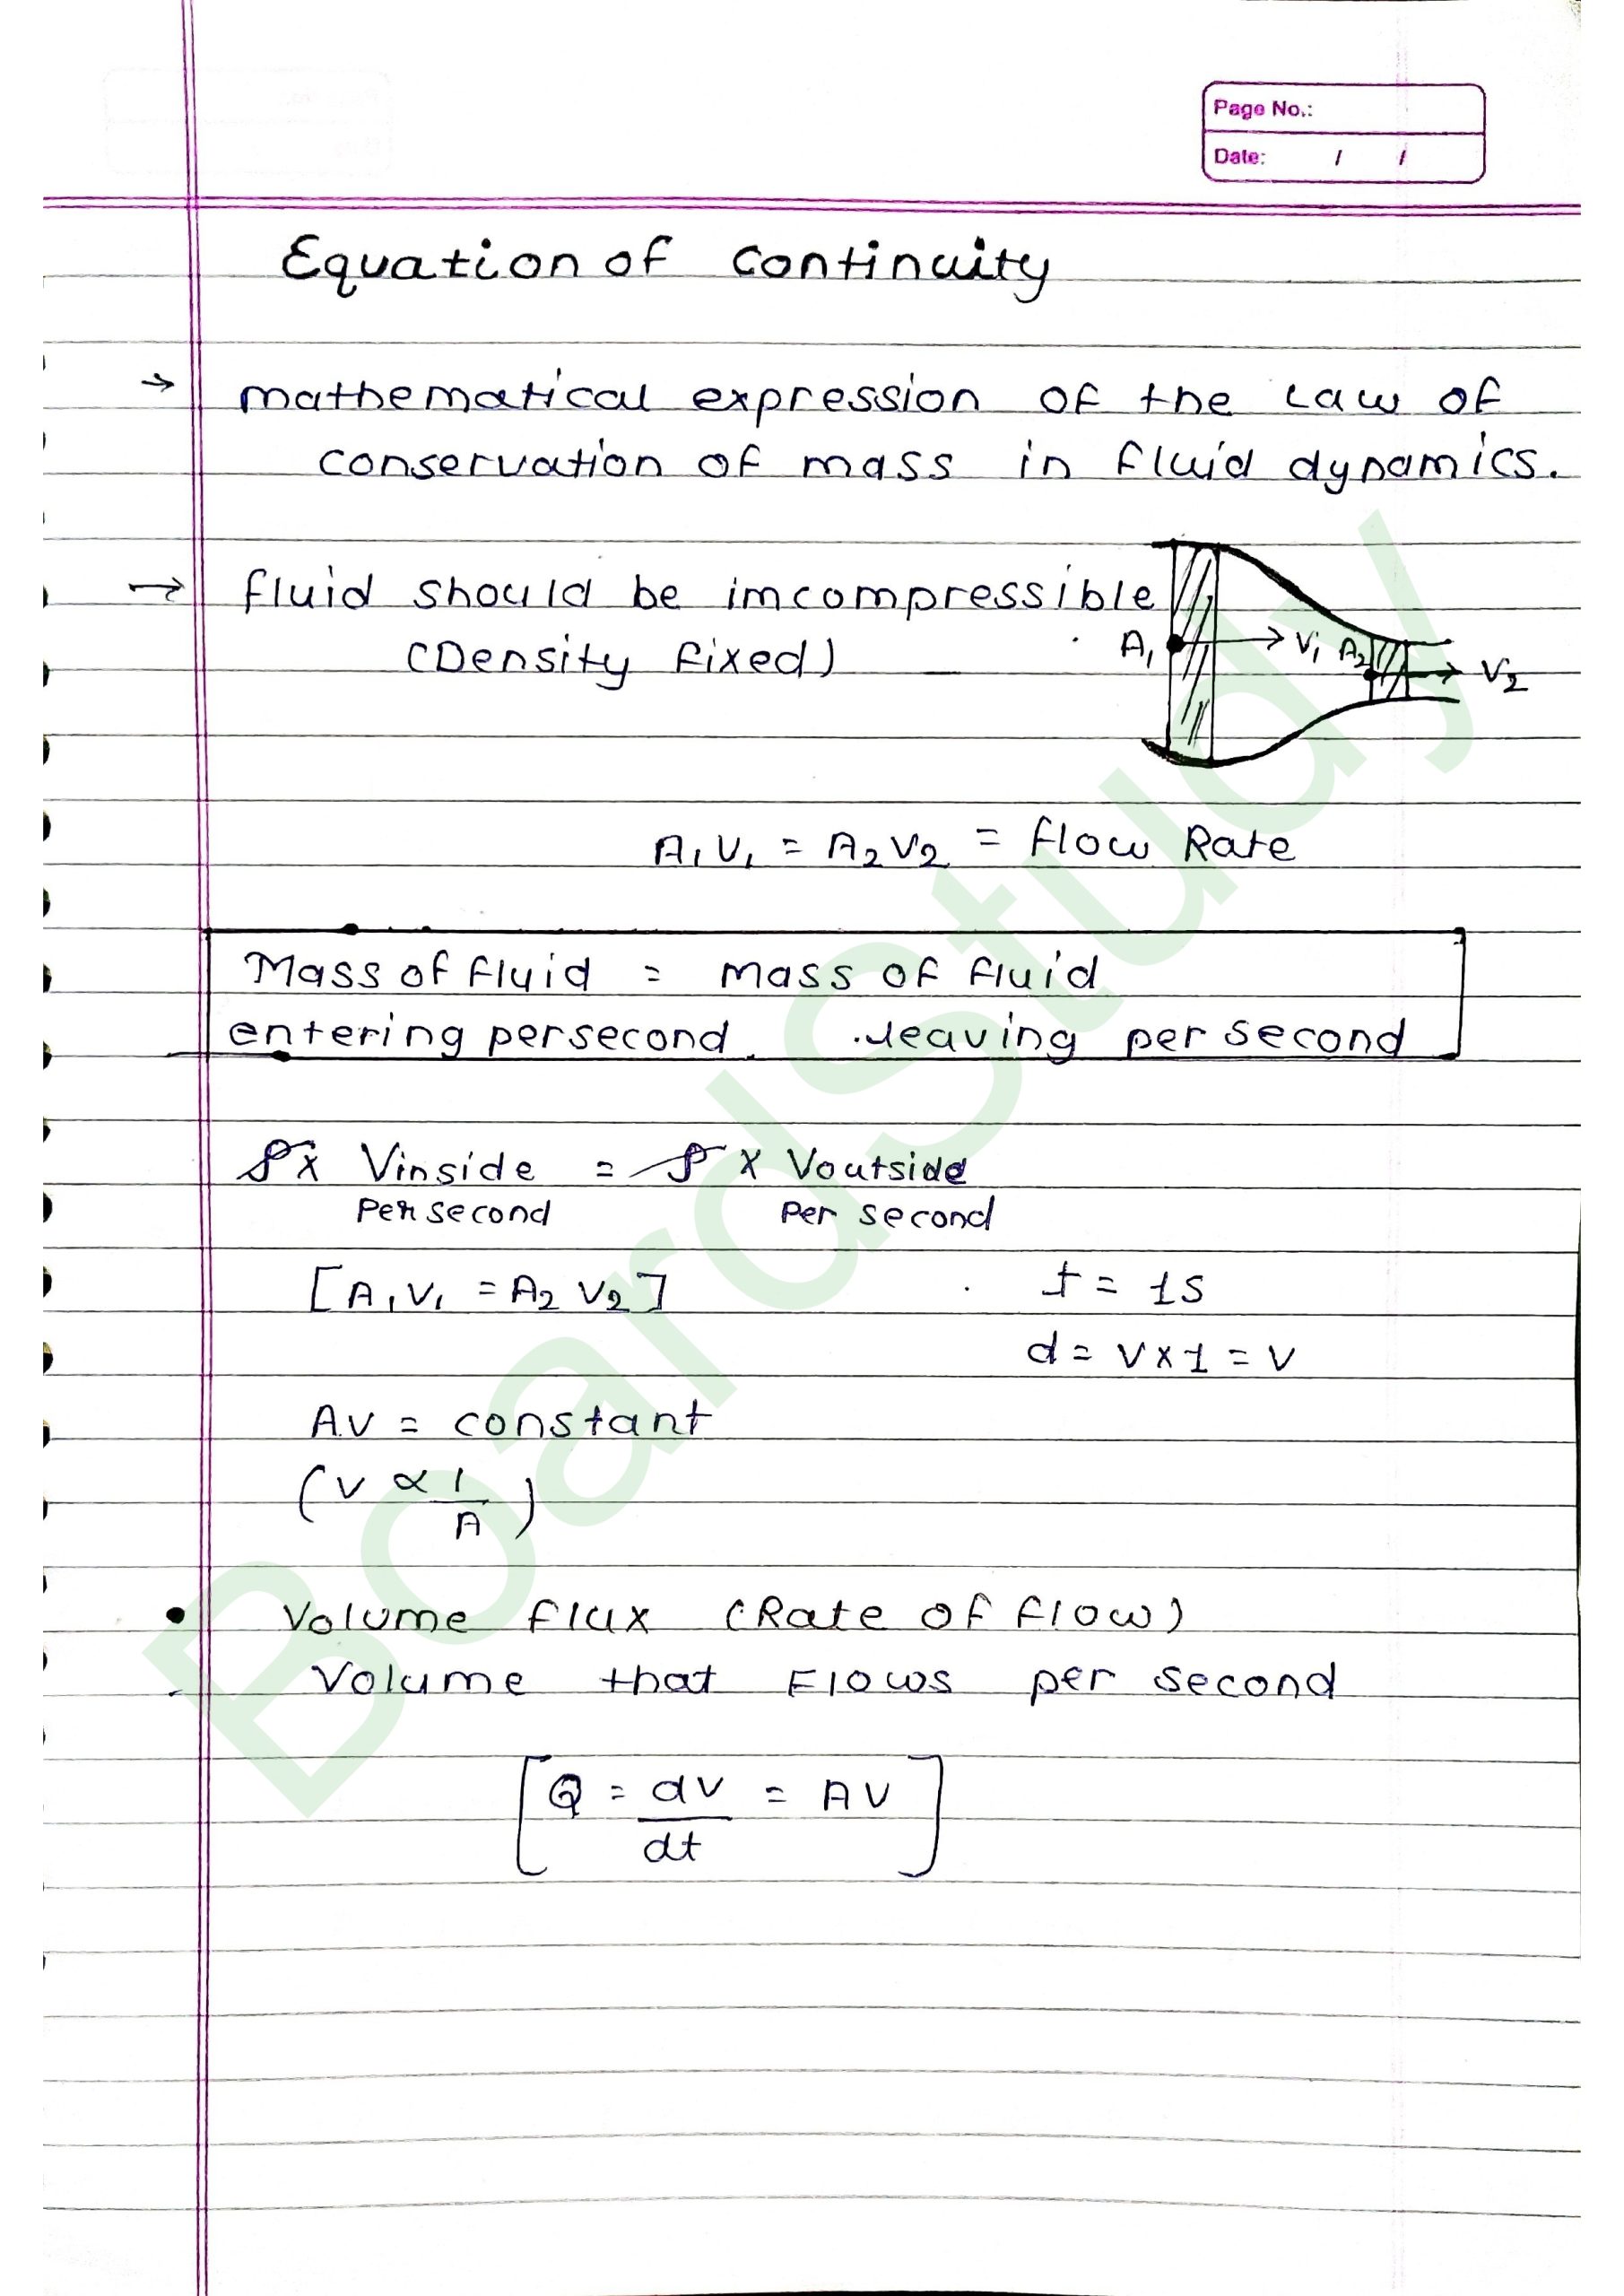 Page No.:
Date: / /
Equation of continuity
→ mathematical expression of the Law of
conservation of mass in fluid dynamics.
→ fluid should be imcompressible
(Density fixed)
A₁ → V₁ A₂ → V₂
A₁V₁ = A₂V₂ = flow Rate
Mass of fluid = mass of fluid
entering per second leaving per second
ρ x Vinside = ρ x Voutside
Per second Per second
[A₁V₁ = A₂V₂] t = 1s
d = v x 1 = v
AV = constant
(V ∝ 1/A)
• Volume flux (Rate of flow)
Volume that Flows per second
[Q = dv/dt = AV]
BoardStudy